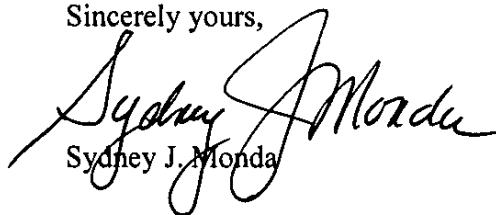 Sincerely yours,
Sydney J Monda
Sydney J. Monda